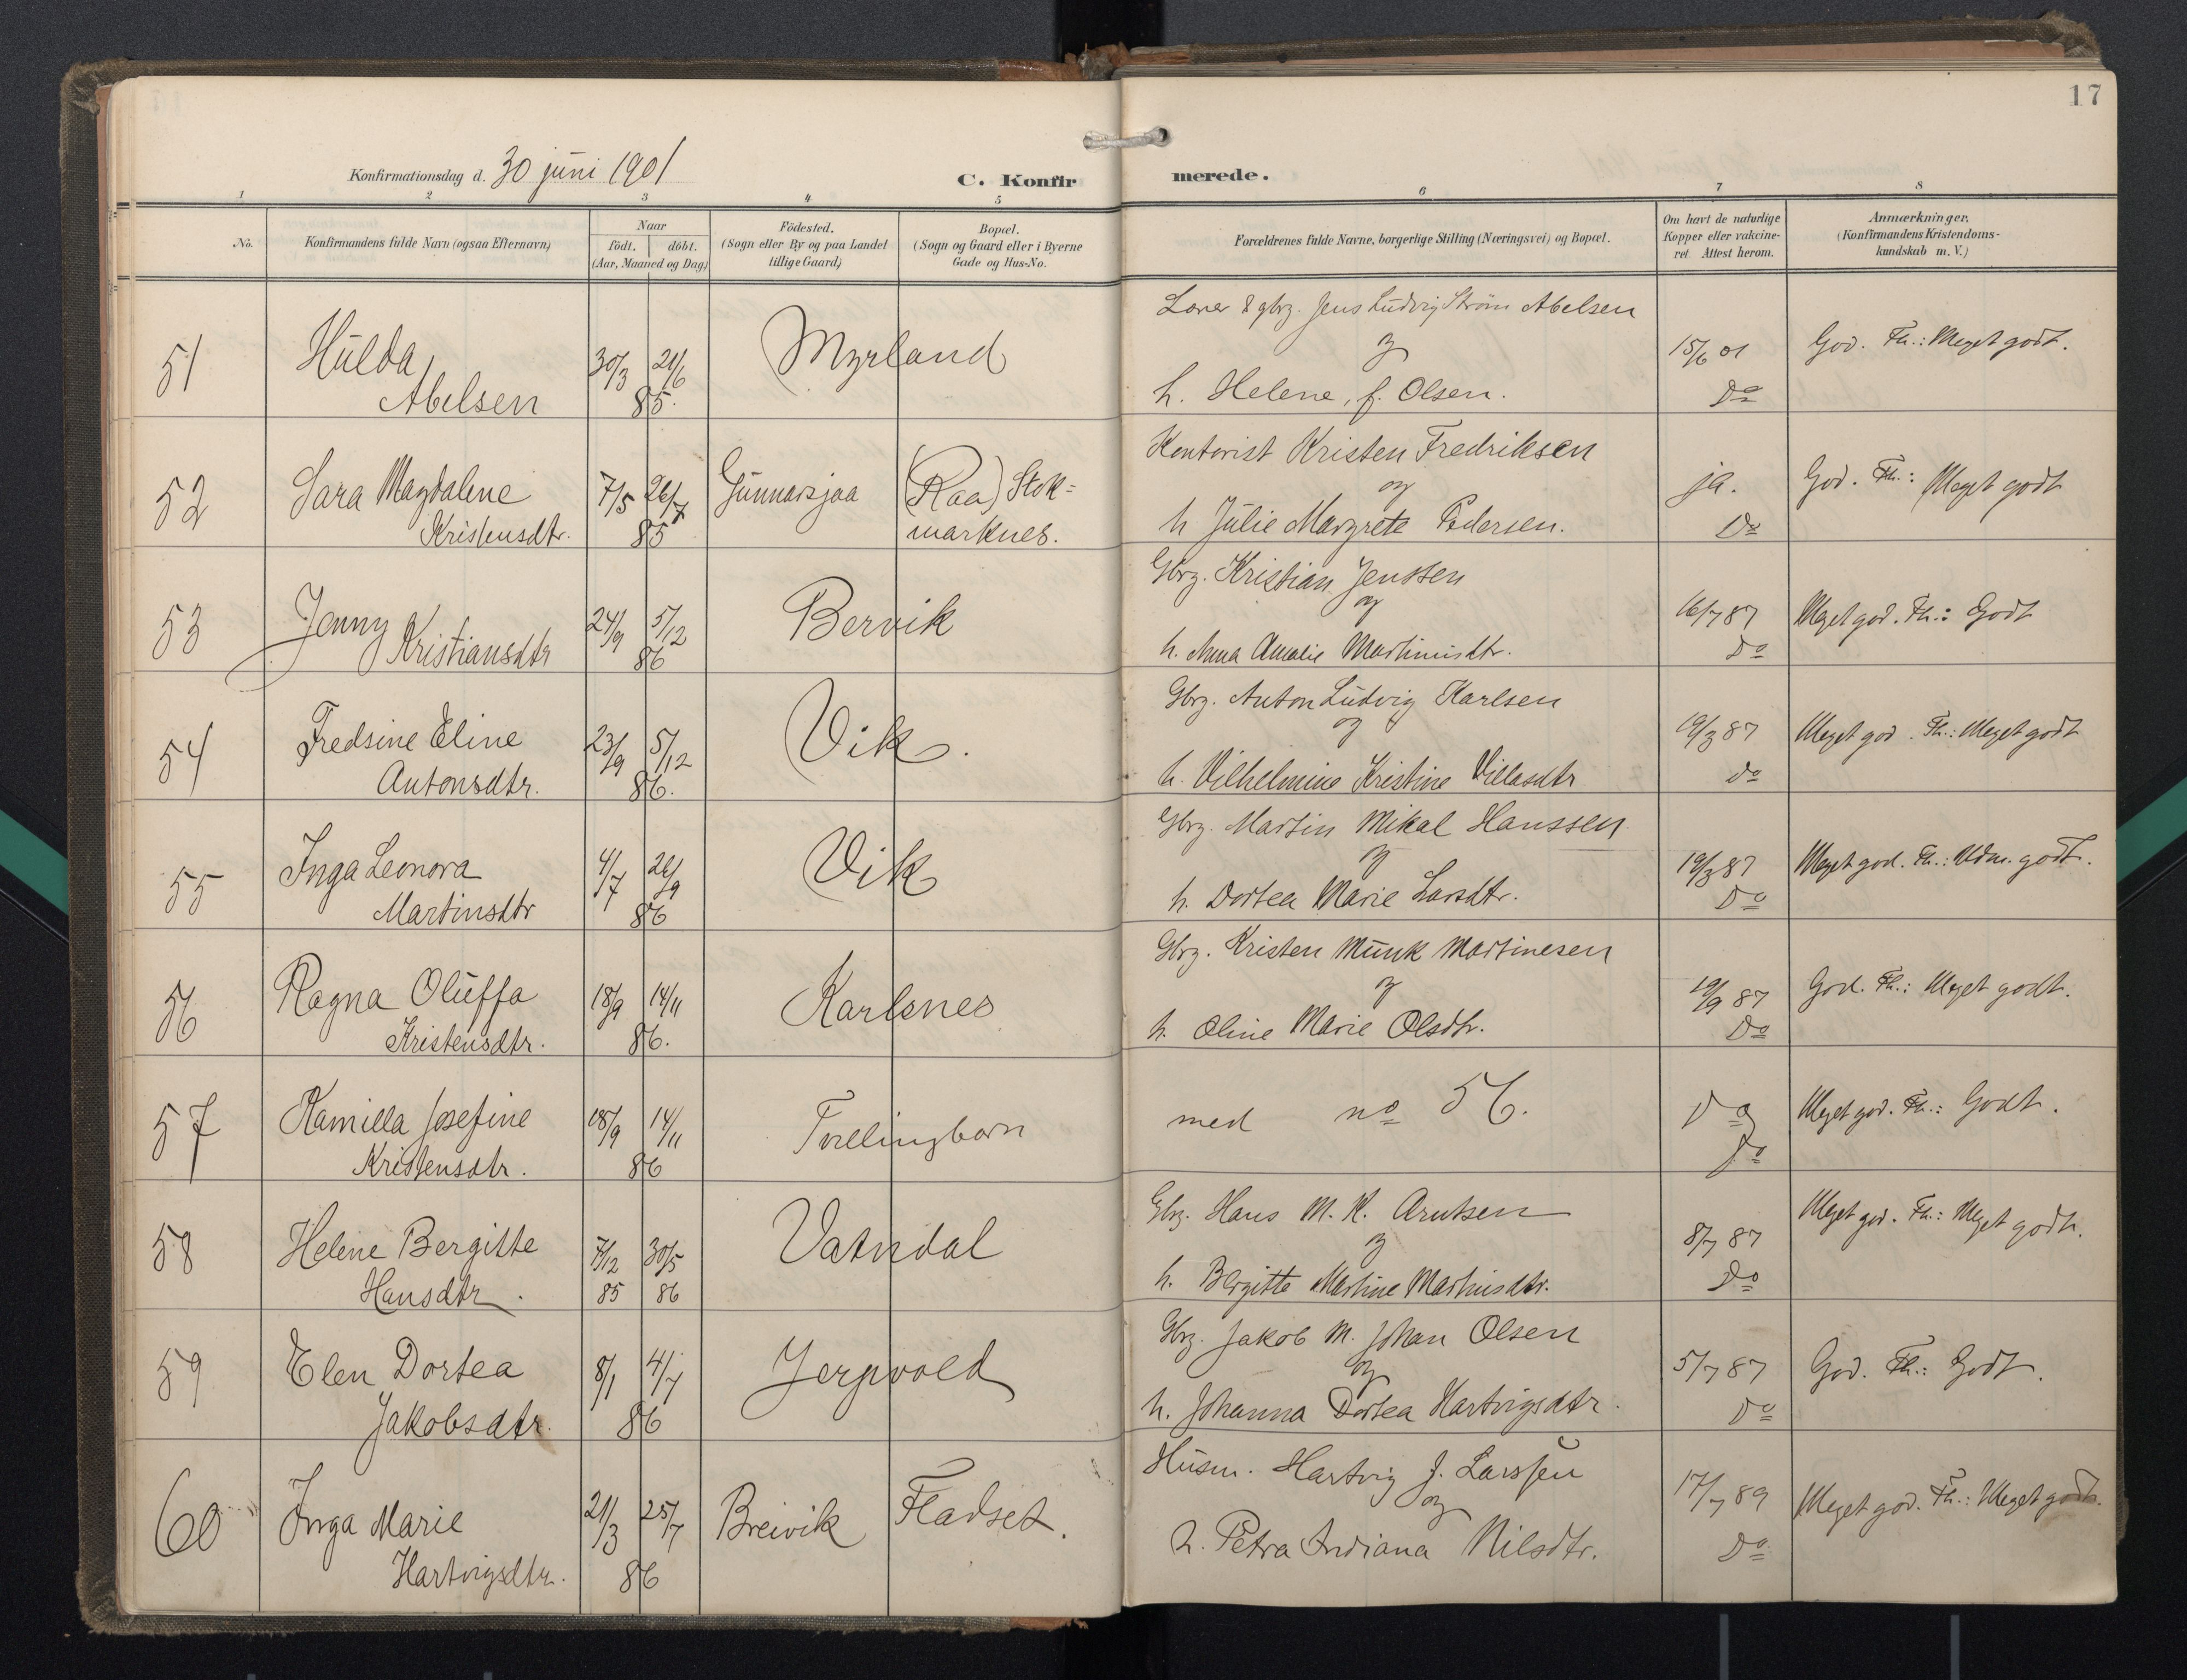 17
Konfirmationsdag d. 30 juni 1901
C. Konfirmerede.
1 2 3 4 5 6 7 8
No.
Konfirmandens fulde Navn (ogsaa Efternavn)
Naar
födt. döbt.
(Aar, Maaned og Dag)
Födested.
(Sogn eller By og paa Landet
tillige Gaard)
Bopæl.
(Sogn og Gaard eller i Byerne
Gade og Hus-No.
Forældrenes fulde Navne, borgerlige Stilling (Næringsvei) og Bopæl.
Om havt de naturlige
Kopper eller vakcine-
ret. Attest herom.
Anmærkninger.
(Konfirmandens Kristendoms-
kundskab m. V.)
51 Hulda
Abelsen
30/3 21/6
85.
Myrland
gbrz. Jens Ludvig Strøm Abelsen
og
h. Helene, f. Olsen.
15/6 01
Do
God. Fl.: Meget godt.
52 Sara Magdalene
Kristensdtr.
7/5 26/7
85
Gunnarsjaa
(Raa) Stok=
marknes.
Kontorist Kristen Fredriksen
og
h Julie Margrete Pedersen.
ja.
Do
God. Fl.: Meget godt
53 Jenny
Kristiansdtr
24/9 5/12
86
Bervik
Gbrz. Kristian Jenssen
og
h. Anna Amalie Martinisdtr.
16/7 87
Do
Meget god. Fl.: Godt
54 Fredsine Eline
Antonsdtr.
23/9 5/12
86.
Vik.
Gbrz. Anton Ludvig Karlsen
og
h. Vilhelmine Kristine Villasdtr
19/3 87
Do
Meget god. Fl.: Meget godt
55 Inga Leonora
Martinsdtr
4/7 26/9
86
Vik
Gbrz. Martin Mikal Hanssen
og
h. Dortea Marie Larsdtr.
19/3 87
Do
Meget god. Fl.: Udm. godt.
56 Ragna Oluffa
Kristensdtr.
18/9 14/11
86.
Karlsnes
Gbrz. Kristen Munk Martinesen
og
h. Oline Marie Olsdtr.
19/9 87
Do
God. Fl.: Meget godt.
57 Kamilla Josefine
Kristensdtr.
18/9 14/11
86
Tvillingbarn
med no 56.
Do
Do
Meget god. Fl.: Godt.
58 Helene Bergitte
Hansdtr.
7/12 30/5
85 86
Vatndal
Gbrz. Hans M. K. Arntsen
og
h. Bergitte Martine Martinsdtr.
8/7 87
Do
Meget god. Fl.: Meget godt.
59 Elen Dortea
Jakobsdtr.
8/1 4/7
86
Jerpvold
Gbrz. Jakob M. Johan Olsen
og
h. Johanna Dortea Hartvigsdtr.
5/7 87
Do
God. Fl.: Godt.
60 Inga Marie
Hartvigsdtr.
21/3 25/7
86
Breivik
Fladset.
Husm. Hartvig J. Larssen
og
h. Petra Indiana Nilsdtr.
17/7 89
Do
Meget god. Fl.: Meget godt.